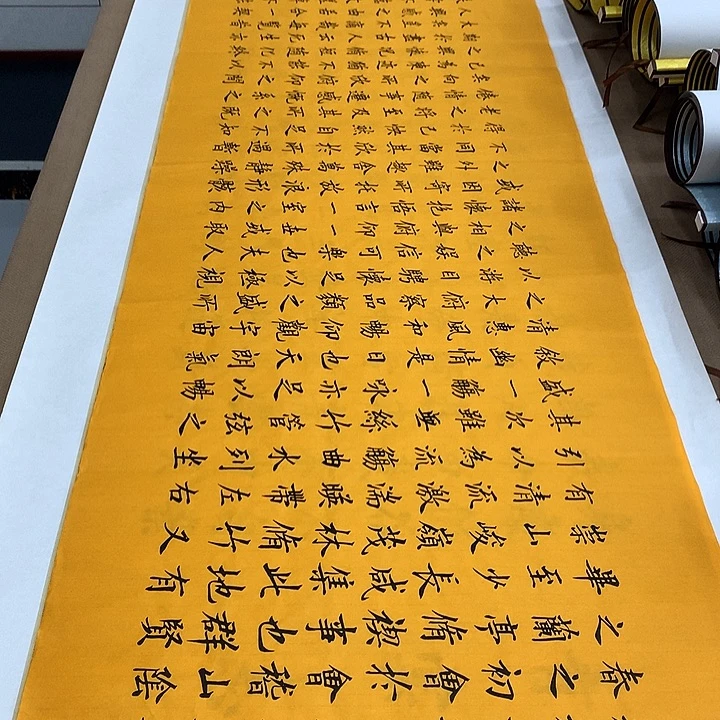 春之初會於會稽山陰
之蘭亭脩禊事也群賢
畢至少長咸集此地有
崇山峻嶺茂林脩竹又
有清流激湍暎帶左右
引以為流觴曲水列坐
其次雖無絲竹管弦之
盛一觴一詠亦足以暢
敘幽情是日也天朗氣
清惠風和暢仰觀宇宙
之大俯察品類之盛所
以游目騁懷足以極視
聽之娛信可樂也夫人
之相與俯仰一世或取
諸懷抱悟言一室之內
或因寄所託放浪形骸
之外雖趣舍萬殊靜躁
不同當其欣於所遇暫
得於己快然自足不知
老之將至及其所之既
惓情隨事遷感慨係之
矣向之所欣俛仰之間